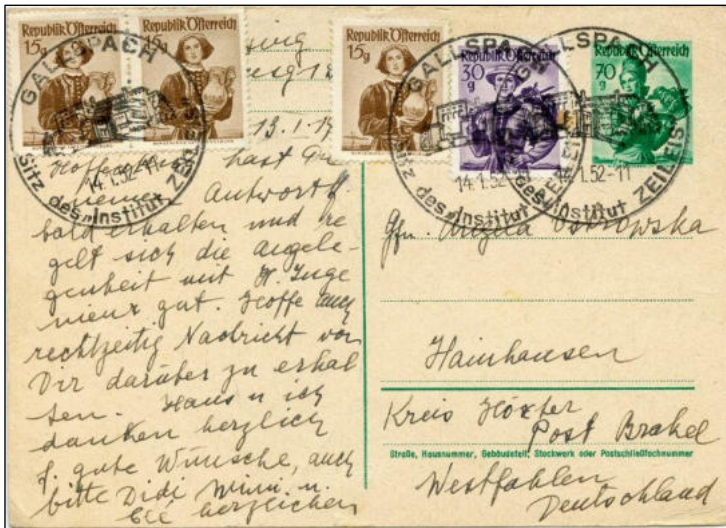 Republik Österreich
15g
Republik Österreich
15g
Republik Österreich
15g
Republik Österreich
30
g
Republik Österreich
70
g
GALLSPACH
14.1.52-11
Sitz des „Institut ZEILEIS
GALLSPACH
14.1.52
Sitz des „Institut
GALLSPACH
14.1.52-11
Sitz des „Institut ZEILEIS
13.1.
Hoffentlich hast Du
meine Antwort
bald erhalten und re
gelt sich die Angele-
genheit mit H. Inge
nieur gut. Hoffe auch
rechtzeitig Nachricht von
Dir darüber zu erhal
ten. Hans u ich
danken herzlich
f. gute Wünsche, auch
bitte Didi Mimi u.
herzlichen
Angela Ostrowska
Hainhausen
Kreis Höxter
Post Brakel
Straße, Hausnummer, Gebäudeteil, Stockwerk oder Postschließfachnummer
Westfahlen
Deutschland